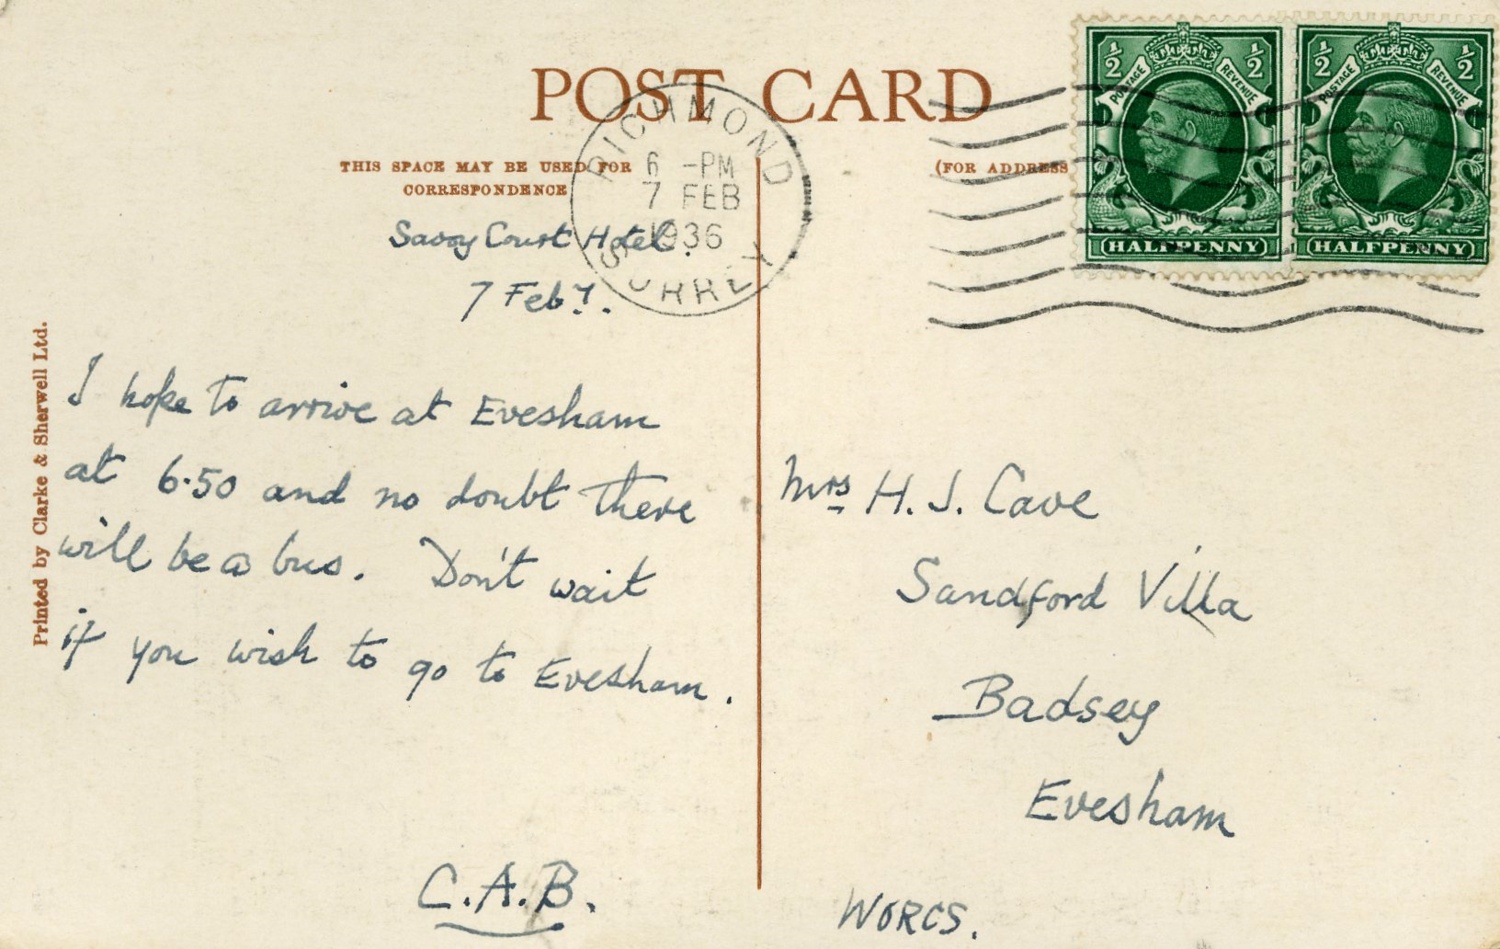 POST CARD
THIS SPACE MAY BE USED FOR
CORRESPONDENCE
(FOR ADDRESS
RICHMOND
6 -PM
7 FEB
1936
SURREY
½ ½
POSTAGE REVENUE
HALFPENNY
½ ½
POSTAGE REVENUE
HALFPENNY
Printed by Clarke & Sherwell Ltd.
Savoy Court Hotel.
7 Feby.
I hope to arrive at Evesham
at 6.50 and no doubt there
will be a bus. Don't wait
if you wish to go to Evesham.
C.A.B.
Mrs H. J. Cave
Sandford Villa
Badsey
Evesham
WORCS.